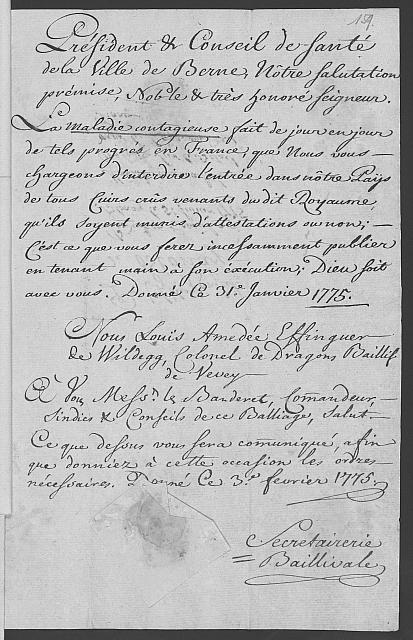 159.
Président & Conseil de Santé
de la Ville de Berne, Nôtre Salutation
prémise, Noble & très honoré Seigneur.
La Maladie contagieuse fait de jour en jour
de tels progrès en France, que Nous vous
chargeons d'interdire l'entrée dans nôtre Païs
de tous Cuirs crûs venants du dit Royaume,
qu'ils soyent munis d'attestations ou non; —
C'est ce que vous ferez incessamment publier
en tenant main à son éxécution; Dieu soit
avec vous. Donné Ce 31.e Janvier 1775.
Nous Louis Amedée Effinguer
de Wildegg, Colonel de Dragons Baillif
de Vevey
à Vous Mess.rs le Banderet, Comandeur,
Sindics & Conseils de ce Balliage, Salut. —
Ce que dessus vous sera comuniqué, afin
que donniez à cette occasion les ordres
nécessaires. Donné Ce 3.e fevrier 1775.
Secretairerie
= Baillivale